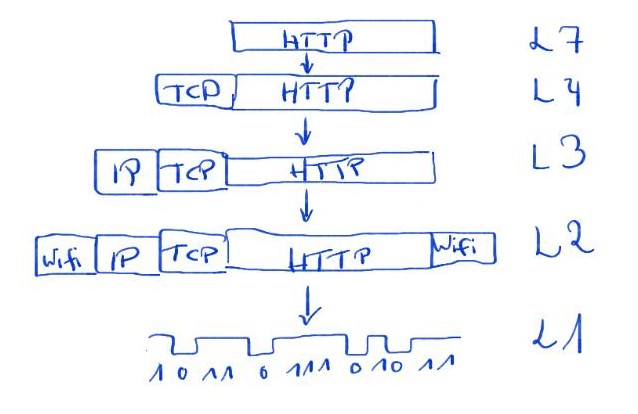 HTTP L7
TCP HTTP L4
IP TCP HTTP L3
Wifi IP TCP HTTP Wifi L2
L1
1 0 11 0 111 0 10 11